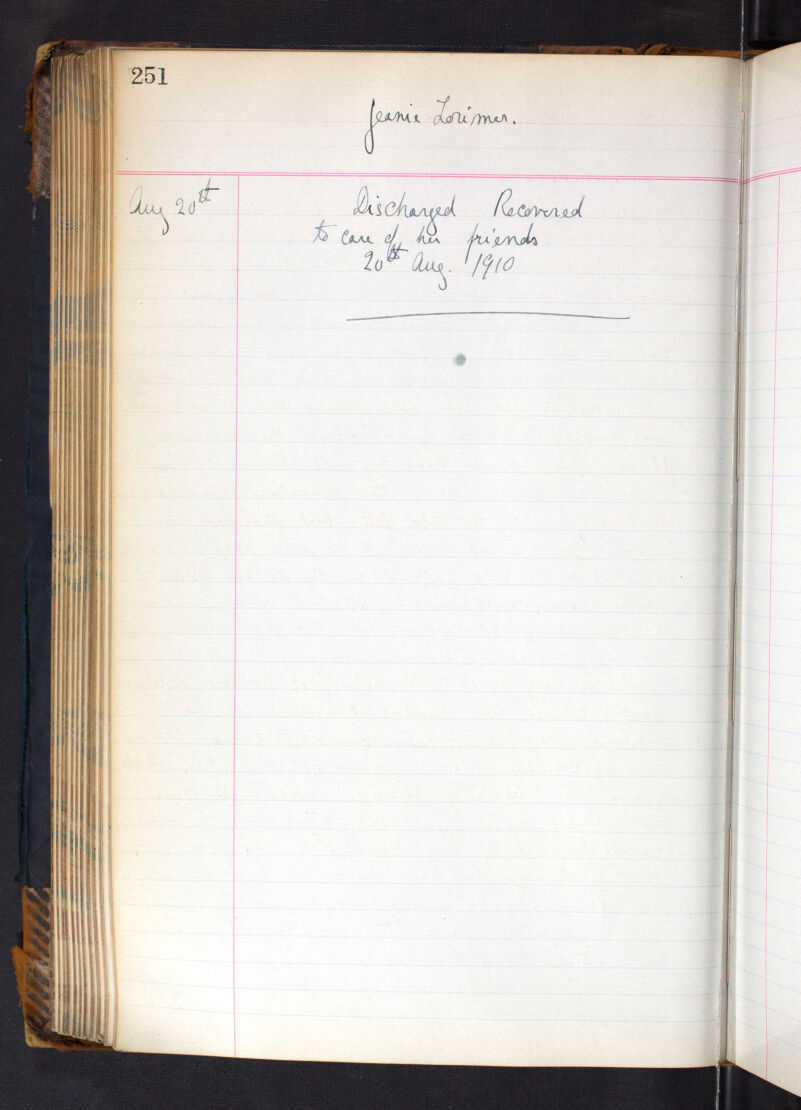 251
Jeanie Lorimer.
Aug 20th
Discharged Recovered
to care of her friends
20th Aug. 1910